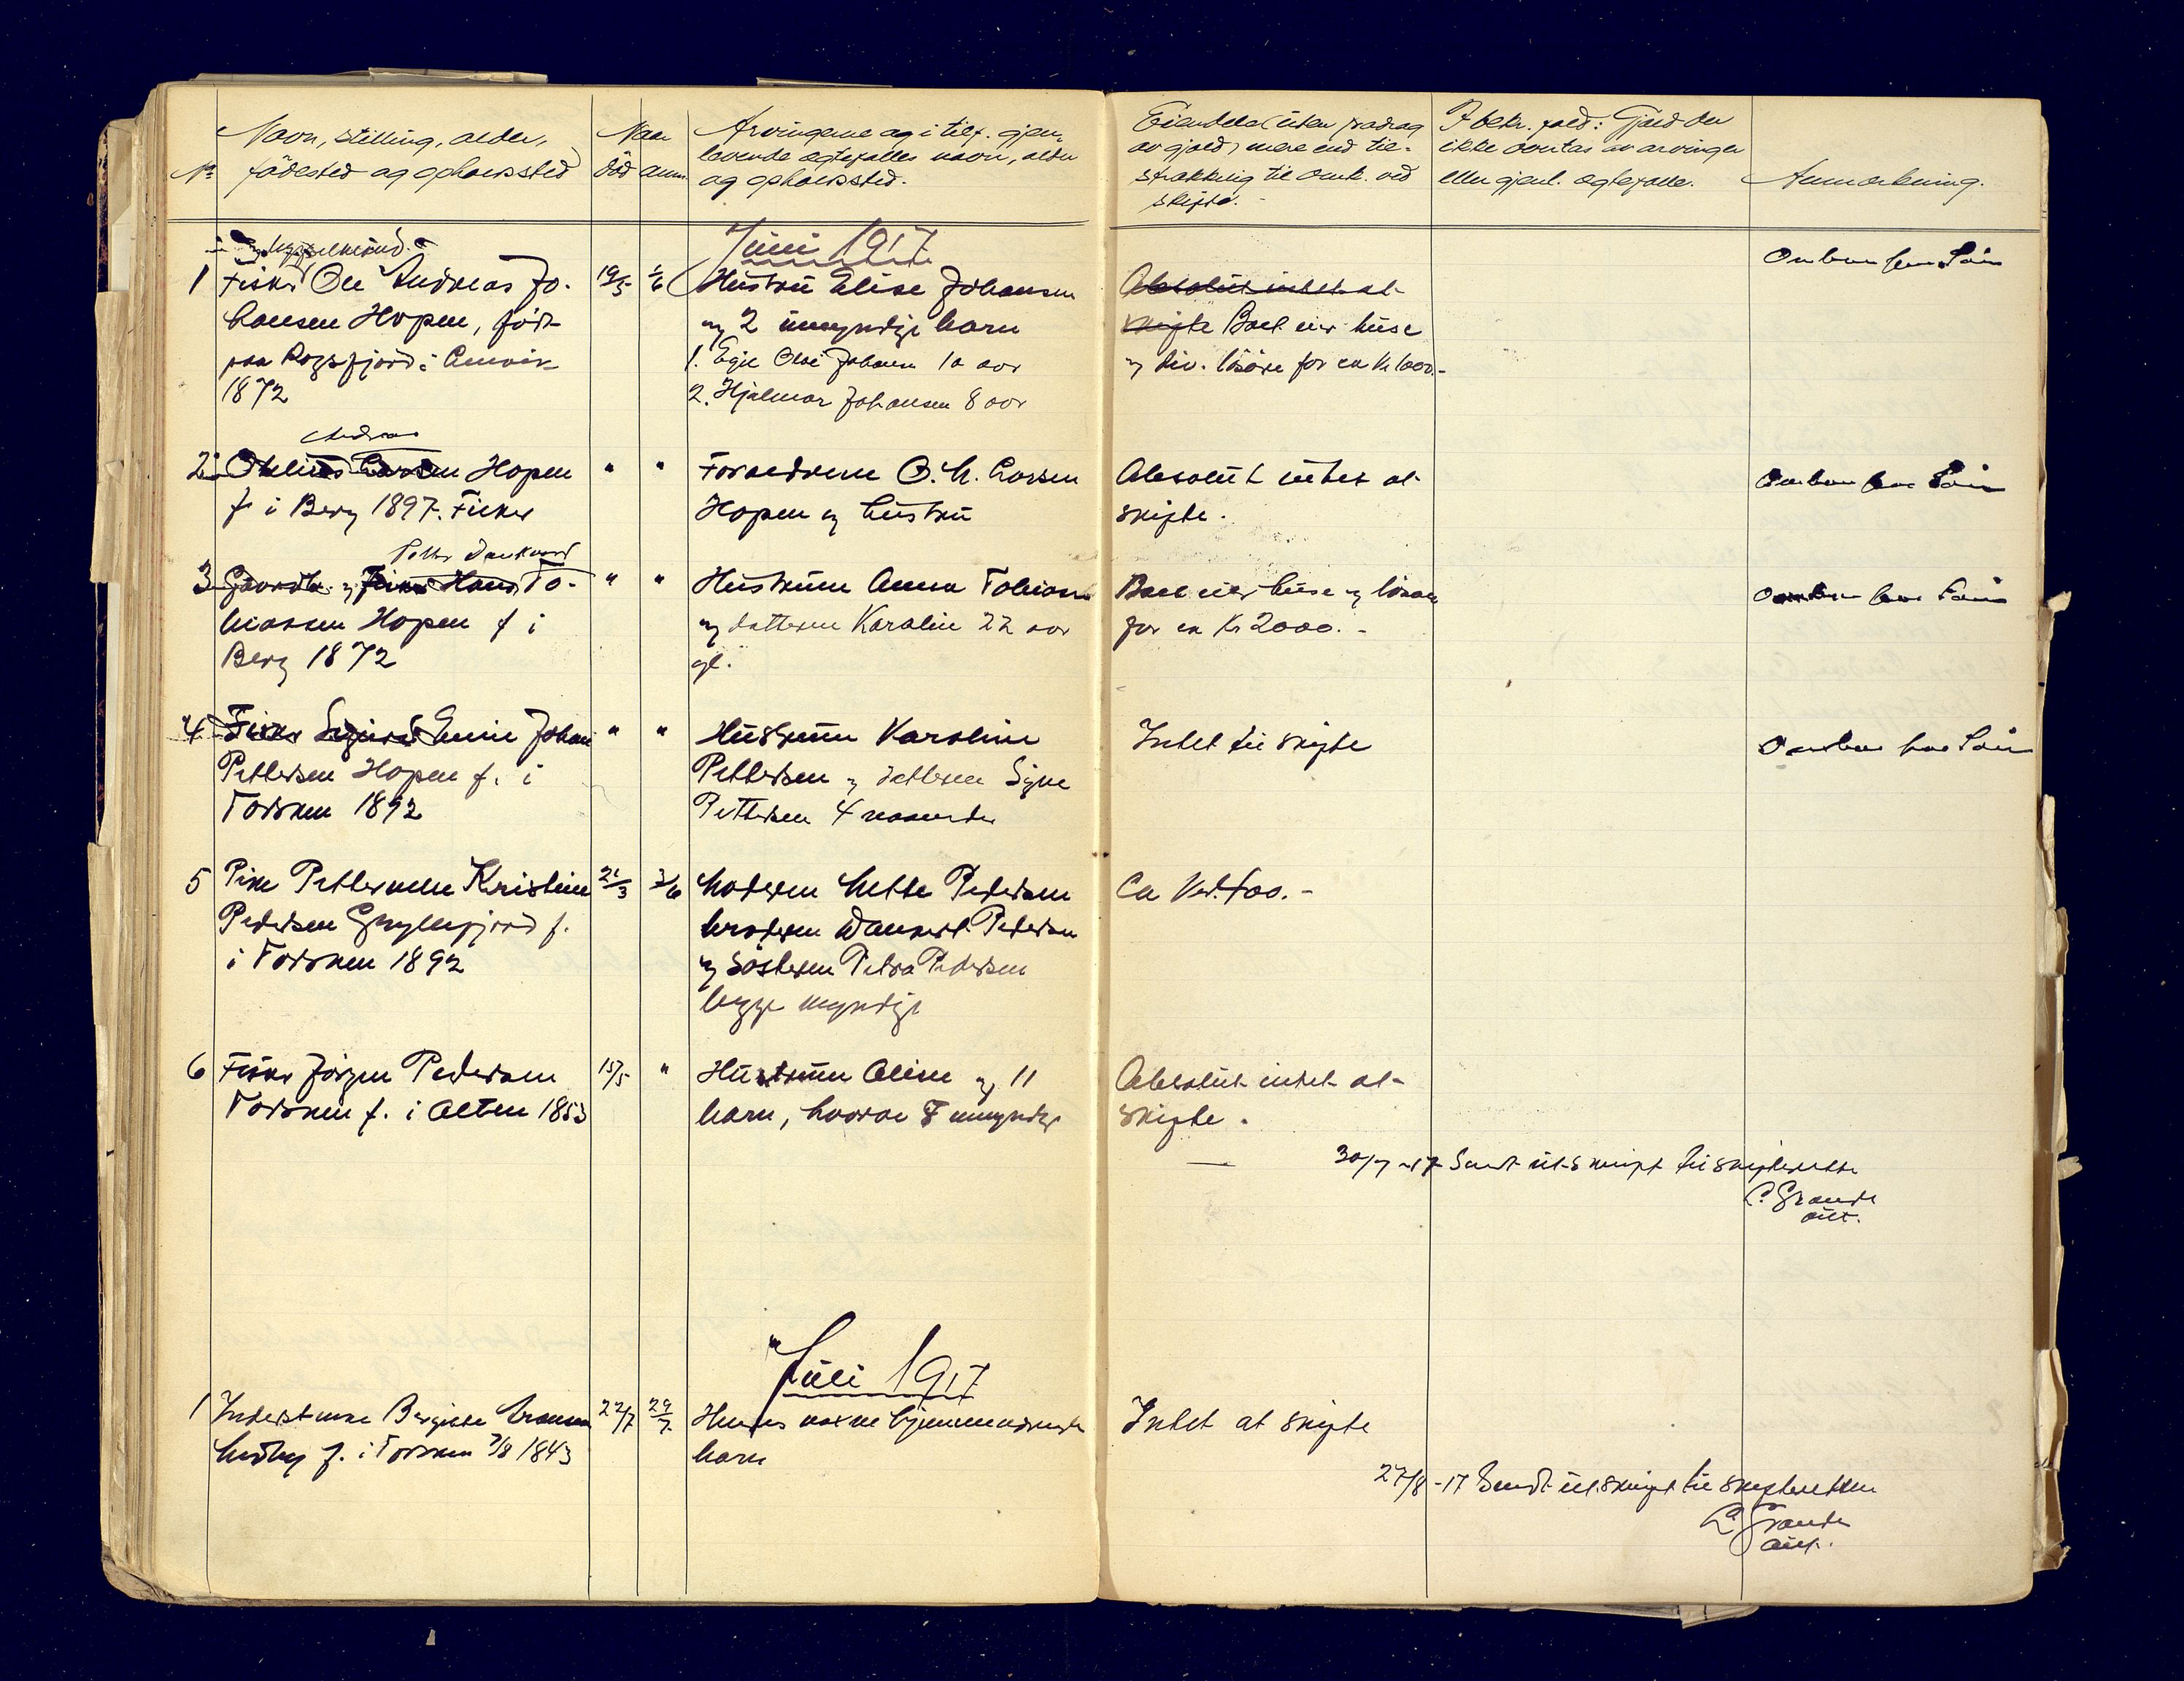 No
Navn, stilling, alder,
fødested og opholdssted
Naar
død anm.
Arvingerne og i tilf. gjen-
levende ægtefælles navn, alder
og opholdssted.
Eiendele (uten fradrag
av gjæld) mere end til-
strækkelig til omk. ved
skifte.
I bekr. fald: Gjæld der
ikke overtas av arvinger
eller gjenl. ægtefælle.
Anmerkning.
Juni 1917
1 Fisker Ole Andreas Jo-
hansen Hopen, født
paa Rogsfjord i Lenvik
1872
19/5
1/6
Hustru Elise Johansen
og 2 umyndige barn
1. Egil Olai Johansen 10 aar
2. Hjalmar Johansen 8 aar
Absolut intet at
skifte Boet eier huse
og div. løsøre for ca Kr 1000.-
Ombord hos
2 Othelius Andreas Larsen Hopen
f. i Berg 1897. Fisker
" "
Forældrene O. M. Larsen
Hopen og hustru
Absolut intet at
skifte.
Ombord hos
3 Gaardbr. og Fisker Hans Petter Dankvard To-
biassen Hopen f i
Berg 1872
" "
Hustruen Anna Tobiassen
og datteren Karoline 22 aar
gl.
Boet eier huse og løsøre
for ca Kr 2000.-
Ombord hos
4 Fisker Sigurd Emin Johan
Pettersen Hopen f. i
Torsken 1892
" "
Hustruen Karoline
Pettersen og datteren Signe
Pettersen 4 maaneder
Intet til skifte
Ombord hos
5 Pike Petternelle Kristine
Pedersen Gryllefjord f.
i Torsken 1892
21/3
3/6
Moderen Mette Pedersen
broderen Dankert Pedersen
og søsteren Petra Pedersen
begge myndige
Ca Kr. 400.-
6 Fisker Jørgen Pedersen
Torsken f. i Alten 1853
15/5
"
Hustruen Oline og 11
barn, hvorav 8 umyndige
Absolut intet at
skifte.
30/7-17 Sendt utskrift til skifteretten
L. Grande
Juli 1917
1 Inderstenke Bergitte
Medby f. i Torsken 7/8 1843
22/7
29/7
Hendes voxne hjemmeværende
barn
Intet at skifte
27/8-17 Sendt utskrift til skifteretten
L. Grande